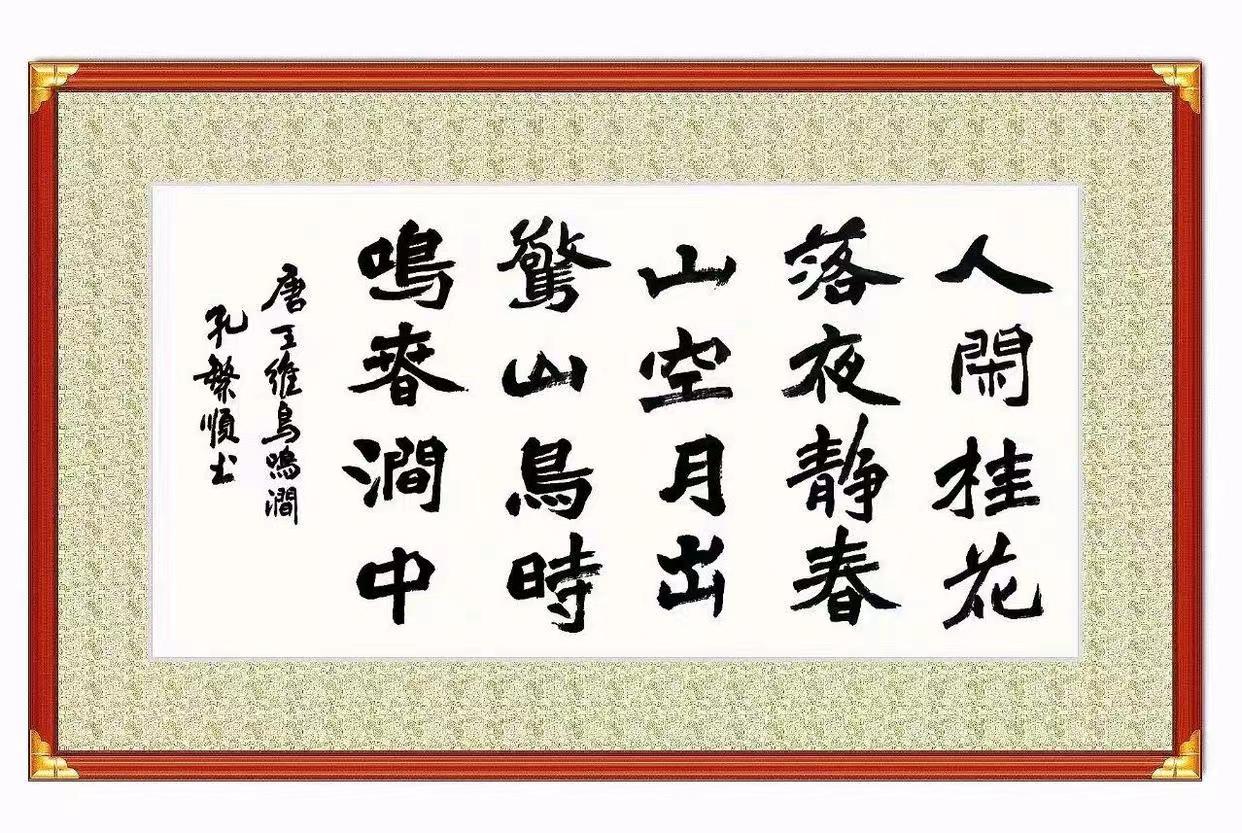 人閑桂花
落夜静春
山空月出
驚山鳥時
鳴春澗中
唐王維鳥鳴澗
孔繁順书